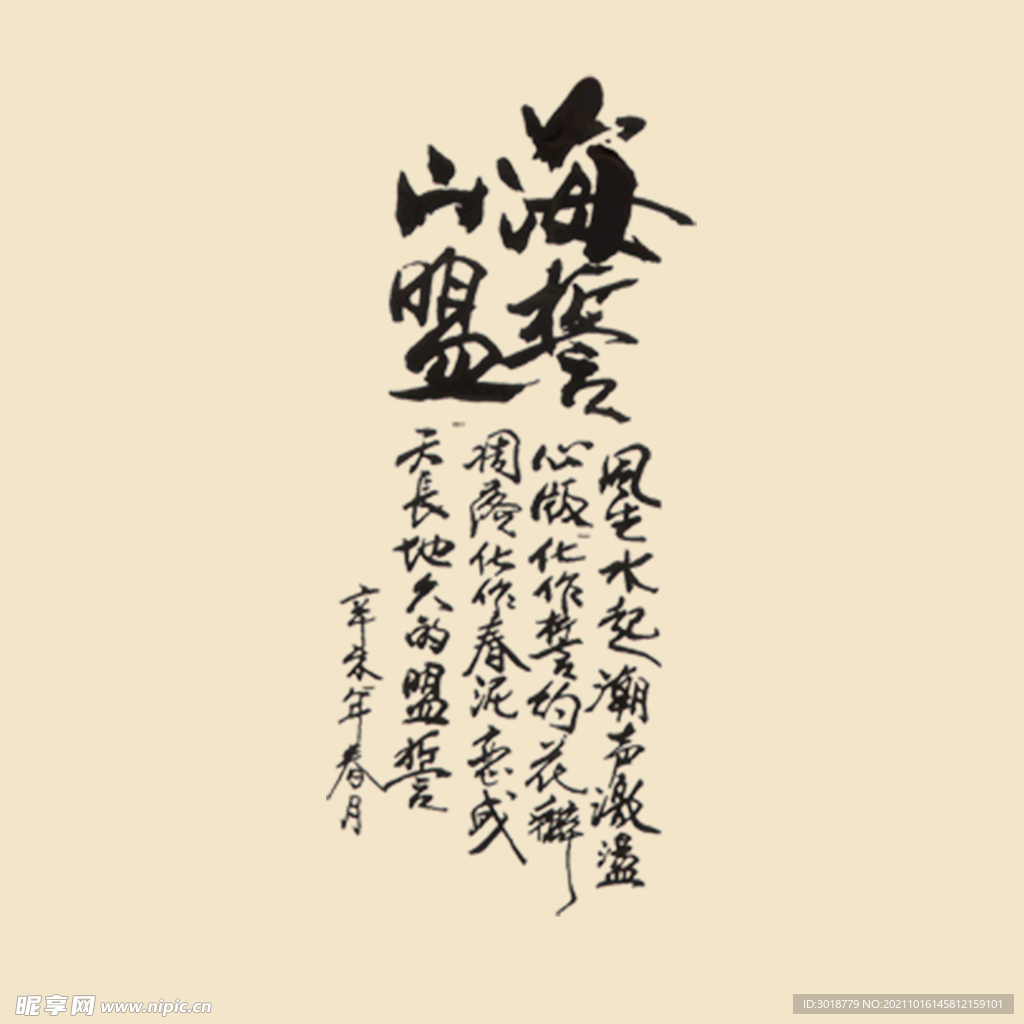 海誓
山盟
風生水起潮声激盪
心版化作誓约花瓣
凋落化作春泥成
天長地久的盟誓
辛未年春月
昵享网 www.nipic.cn
ID:3018779 NO:20211016145812159101